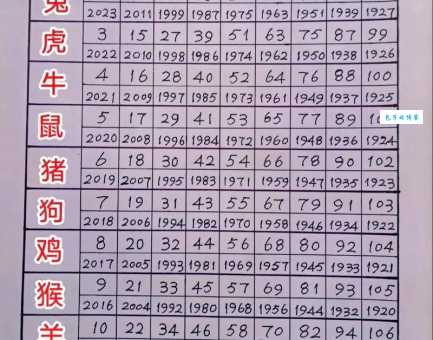 兔
2023 2011 1999 1987 1975 1963 1951 1939 1927
虎
3 15 27 39 51 63 75 87 99
2022 2010 1998 1986 1974 1962 1950 1938 1926
牛
4 16 28 40 52 64 76 88 100
2021 2009 1997 1985 1973 1961 1949 1937 1925
鼠
5 17 29 41 53 65 77 89
2020 2008 1996 1984 1972 1960 1948 1936 1924
猪
6 18 30 42 54 66 78 90 102
2019 2007 1995 1983 1971 1959 1947 1935 1923
狗
7 19 31 43 55 67 79 91 103
2018 2006 1994 1982 1970 1958 1946 1934 1922
鸡
8 20 32 44 56 68 80 92 104
2017 2005 1993 1981 1969 1957 1945 1933 1921
猴
9 21 33 45 57 69 81 93 105
2016 2004 1992 1980 1968 1956 1944 1932 1920
羊
10 22 34 46 58 70 82 94 106